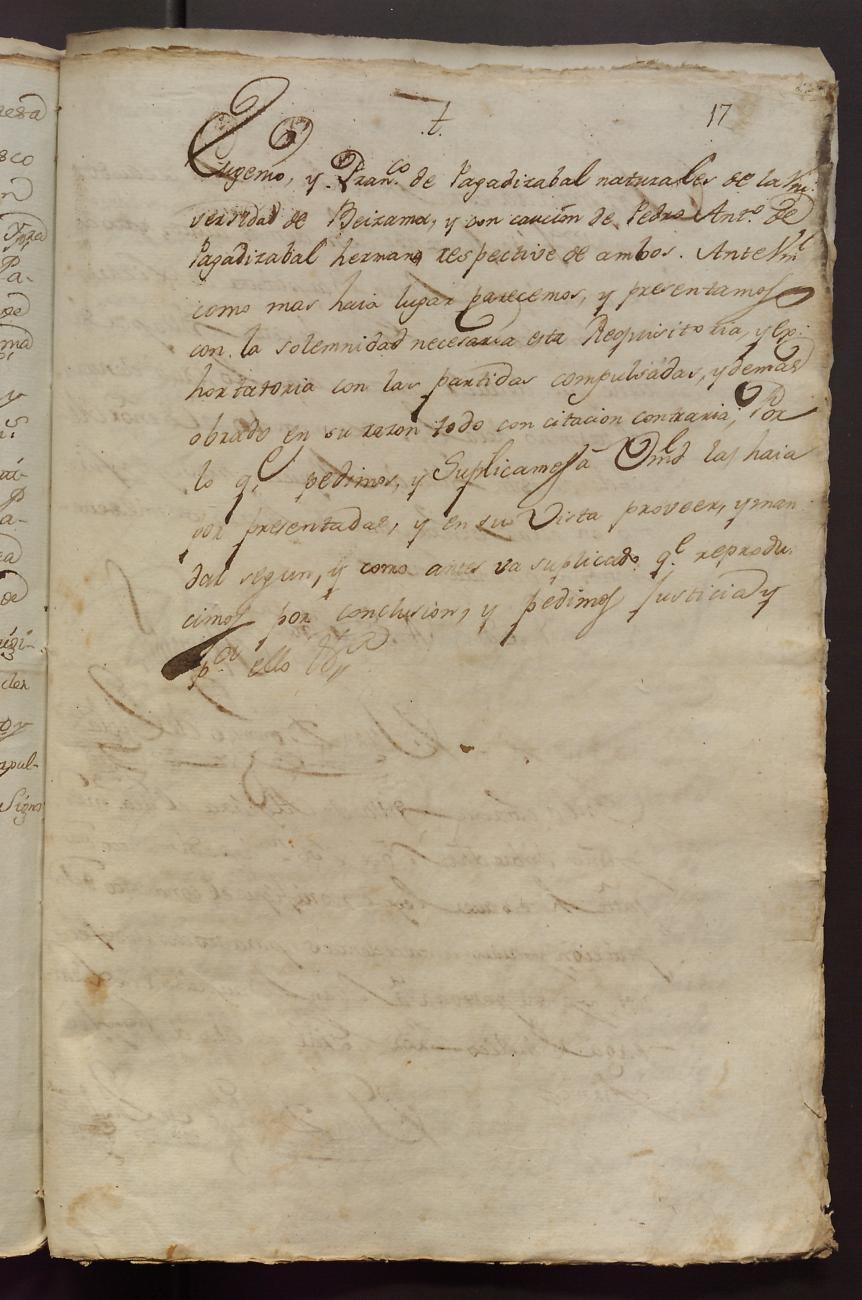 17
.t.
Eugenio, y Franco. de Pagadizabal naturales de la Vni-
versidad de Beizama, y con caucion de Pedro Anto. de
Pagadizabal hermano respective de ambos. Ante Vmd
como mas haia lugar parecemos, y presentamos
con la solemnidad necesaria esta Requisitoria, y Ex-
hortatoria con las partidas compulsadas, y demas
obrado en su razon todo con citacion contraria, Por
lo q.e pedimos, y Suplicamos â Vmd las haia
por presentadas, y en su Vista proveer, y man
dar segun, y como antes va suplicado q.e reprodu-
cimos por conclusion, y pedimos Justicia y
p.a ello